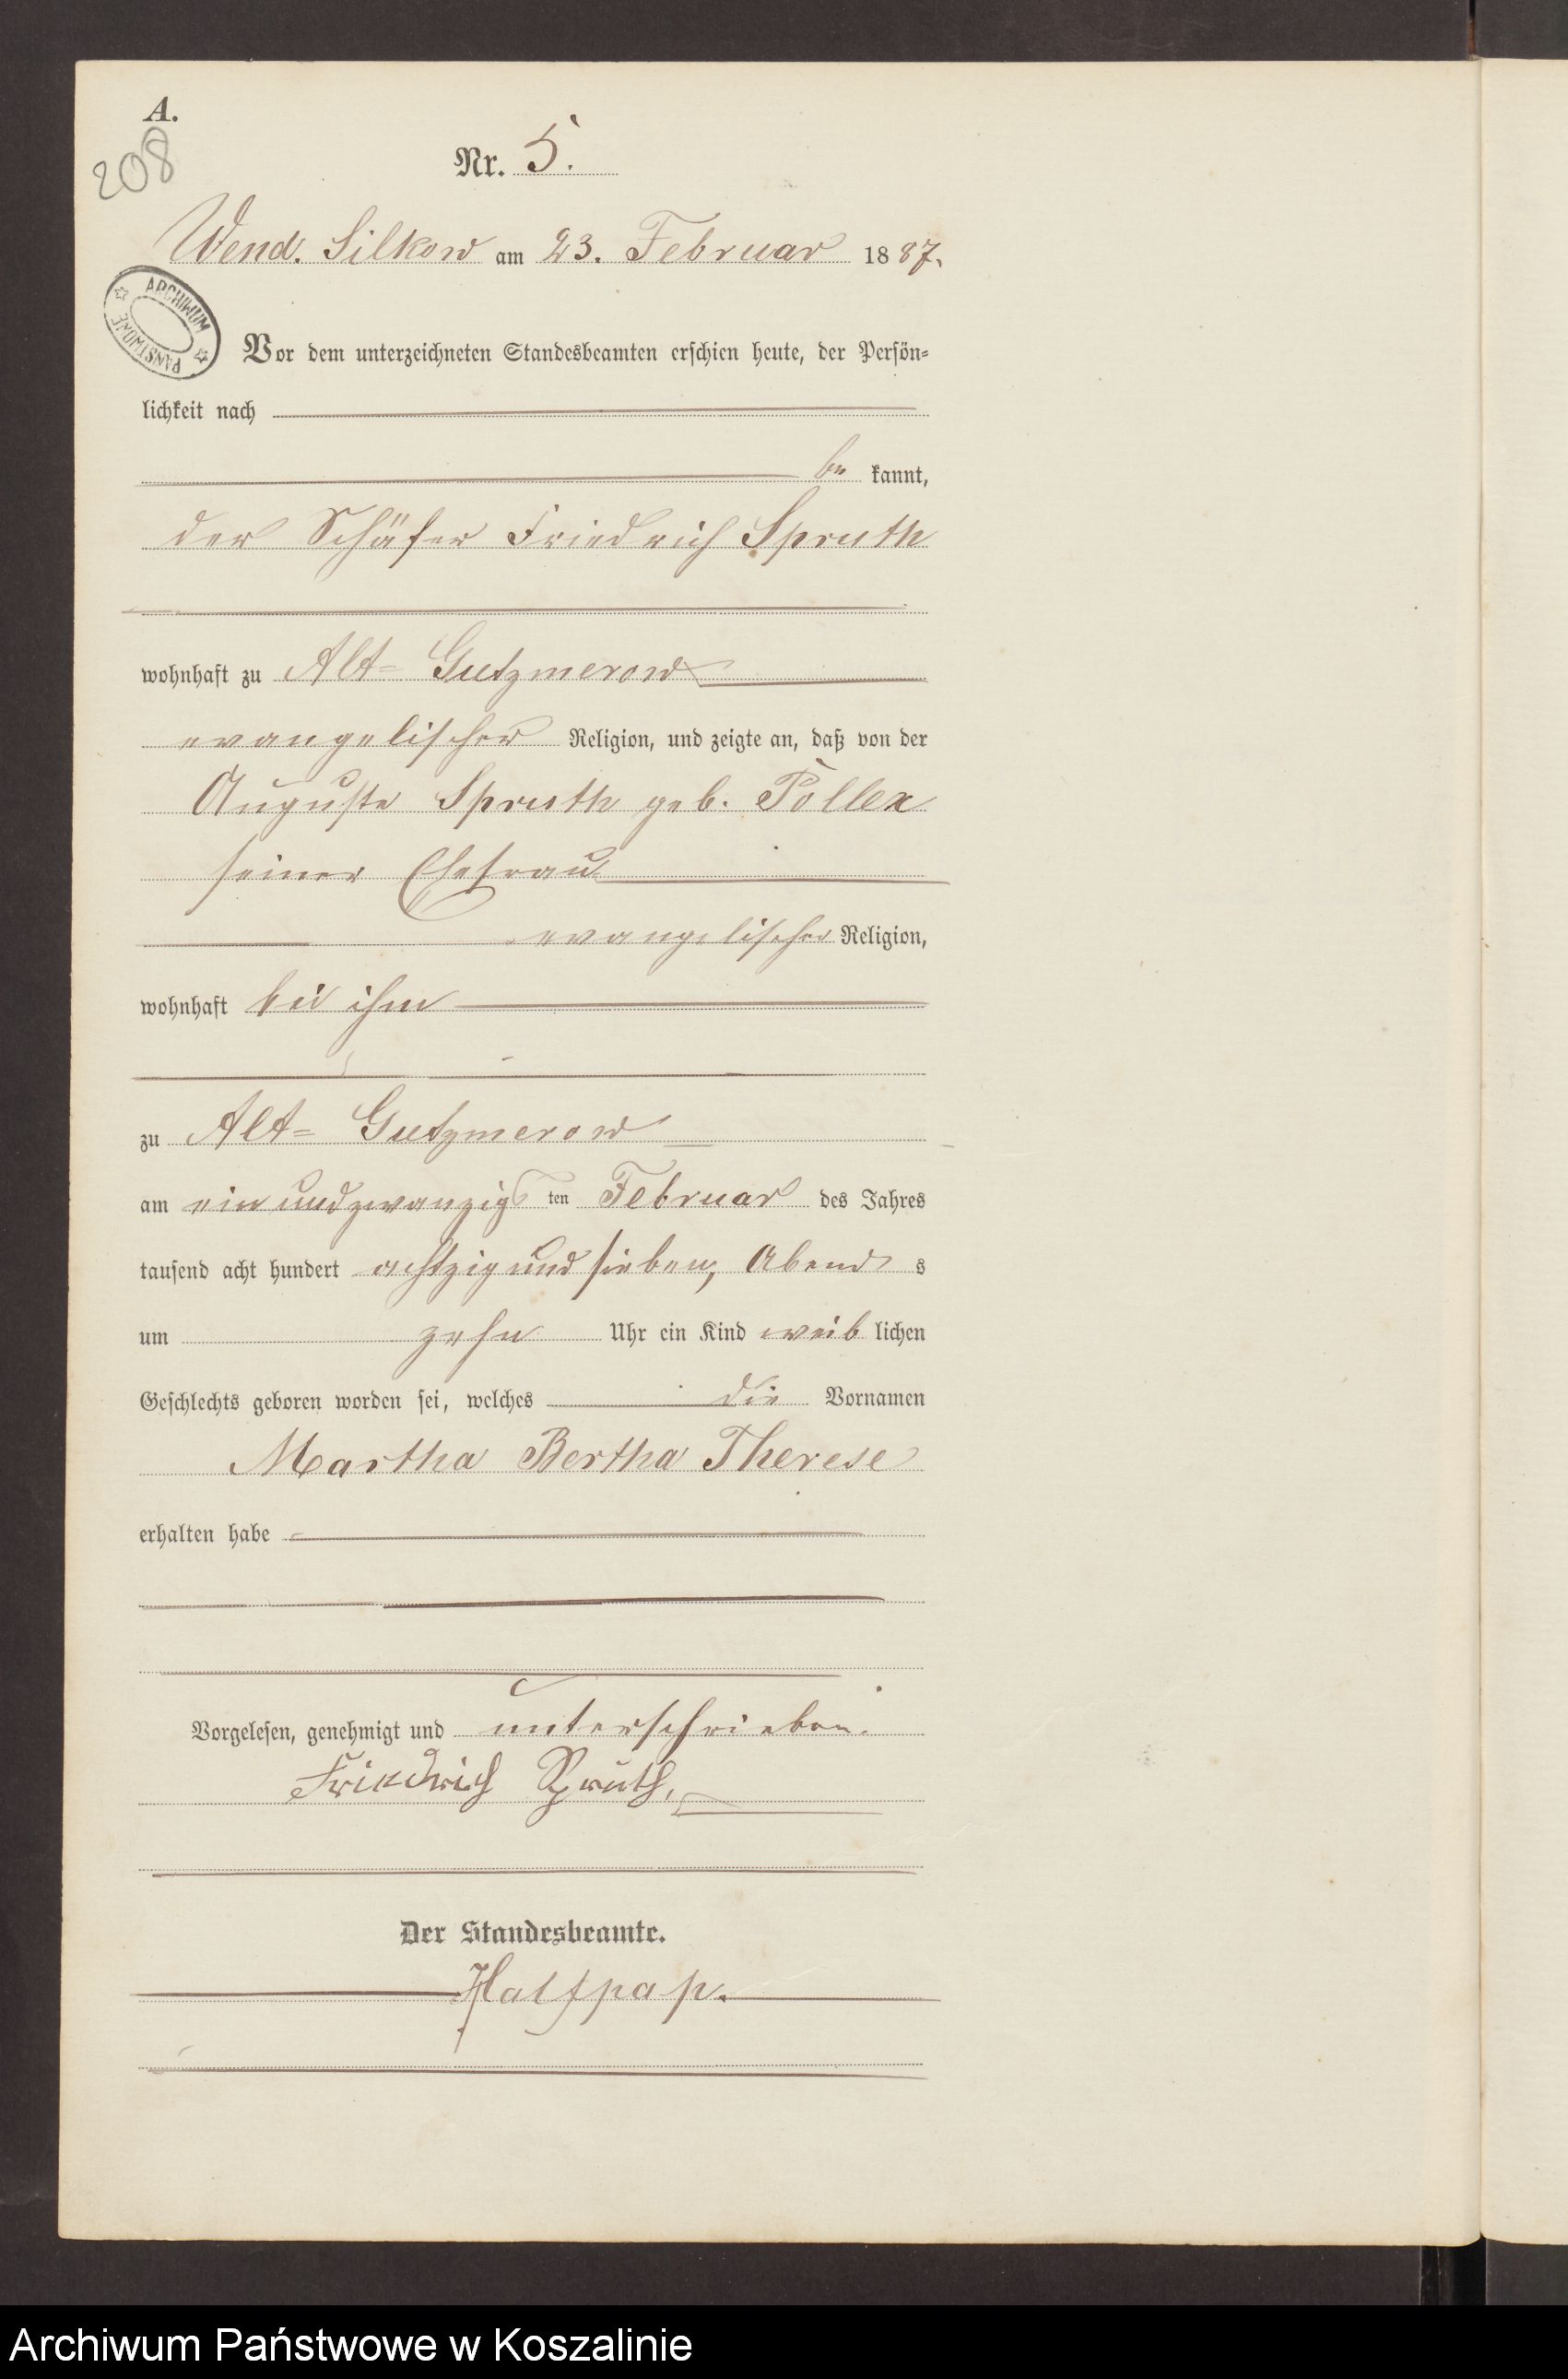 A.
208
Nr. 5.
Wend. Silkow am 23. Februar 1887.
ARCHIWUM PAŃSTWOWE
Vor dem unterzeichneten Standesbeamten erschien heute, der Persön-
lichkeit nach
be kannt,
der Schäfer Friedrich Spruth
wohnhaft zu Alt- Gutzmerow
evangelischer Religion, und zeigte an, daß von der
Auguste Spruth geb. Pollex
seiner Ehefrau
evangelischer Religion,
wohnhaft bei ihm
zu Alt- Gutzmerow
am ein und zwanzigsten Februar des Jahres
tausend acht hundert achtzig und sieben, Abends
um zehn Uhr ein Kind weiblichen
Geschlechts geboren worden sei, welches die Vornamen
Martha Bertha Therese
erhalten habe
Vorgelesen, genehmigt und unterschrieben.
Friedrich Spruth,
Der Standesbeamte.
Halfpap.
Archiwum Państwowe w Koszalinie